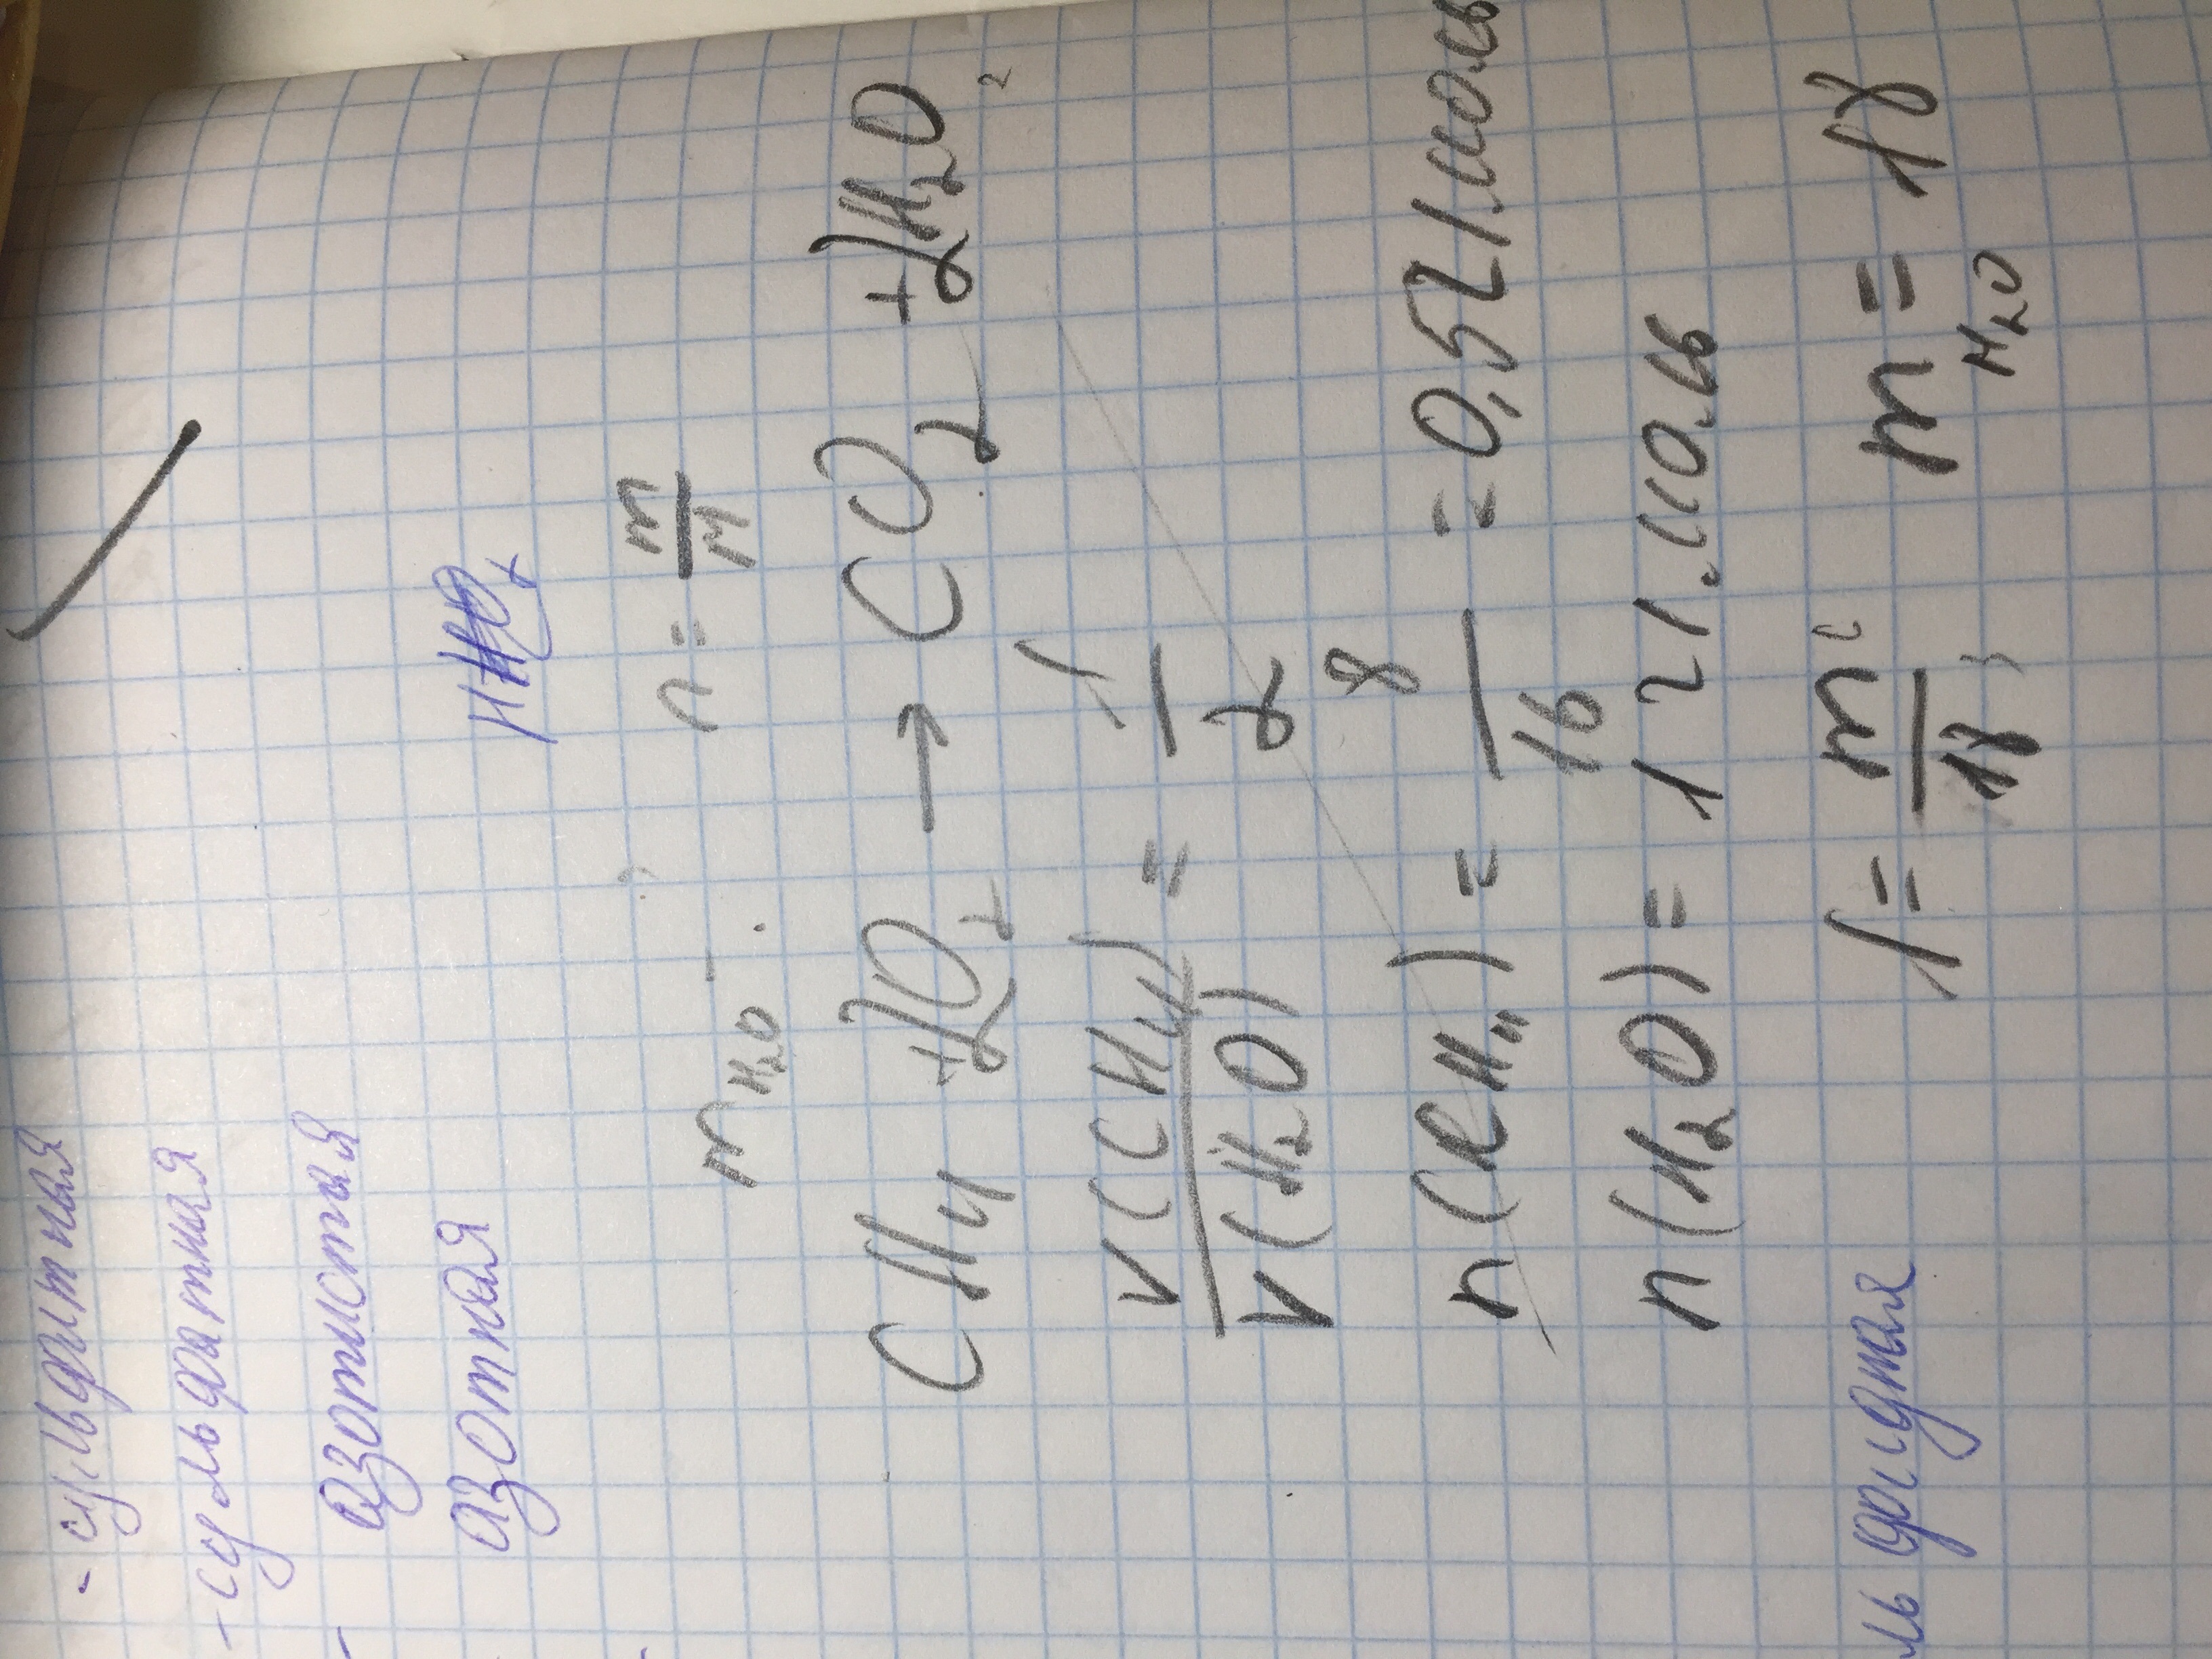 - сульфитная
- сульфатная
- азотистая
азотная
n = m/M
m H₂O
CH₄ + 2O₂ → CO₂ + 2H₂O
ν(CH₄)/ν(H₂O) = 1/2
n( H₄) = 8/16 = 0,5 моль
n(H₂O) = 1 моль
1 = m/18 m H₂O = 18